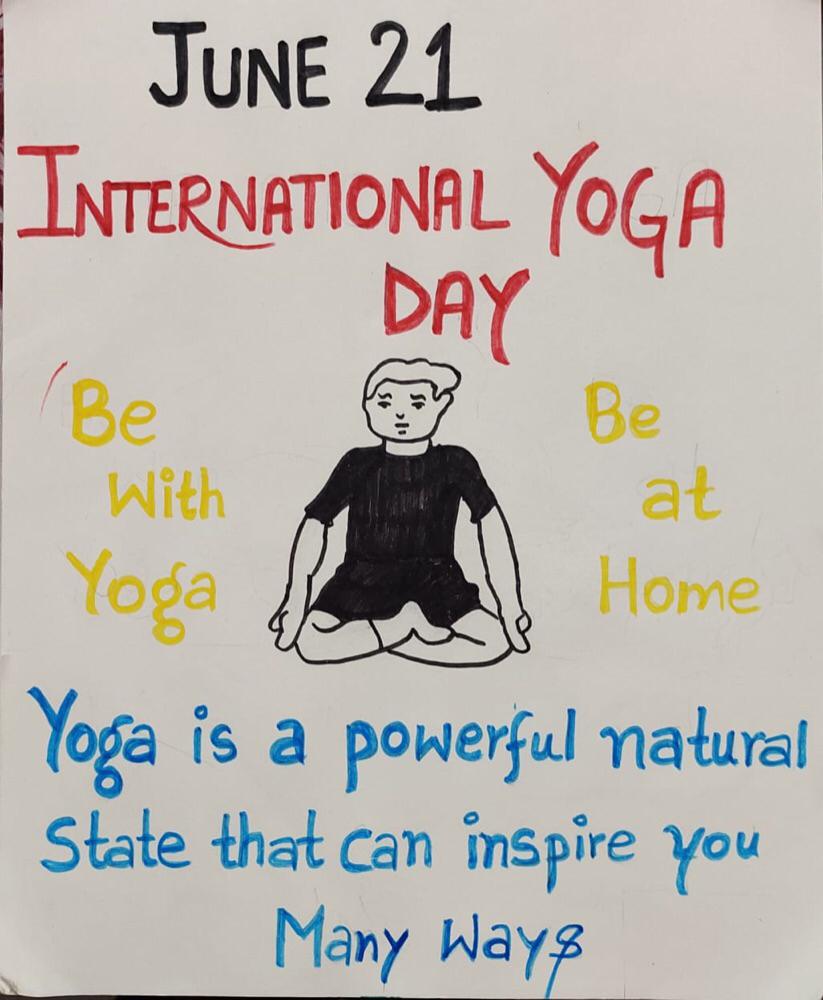 JUNE 21
INTERNATIONAL YOGA
DAY
Be
With
Yoga
Be
at
Home
Yoga is a powerful natural
State that can inspire you
Many Ways